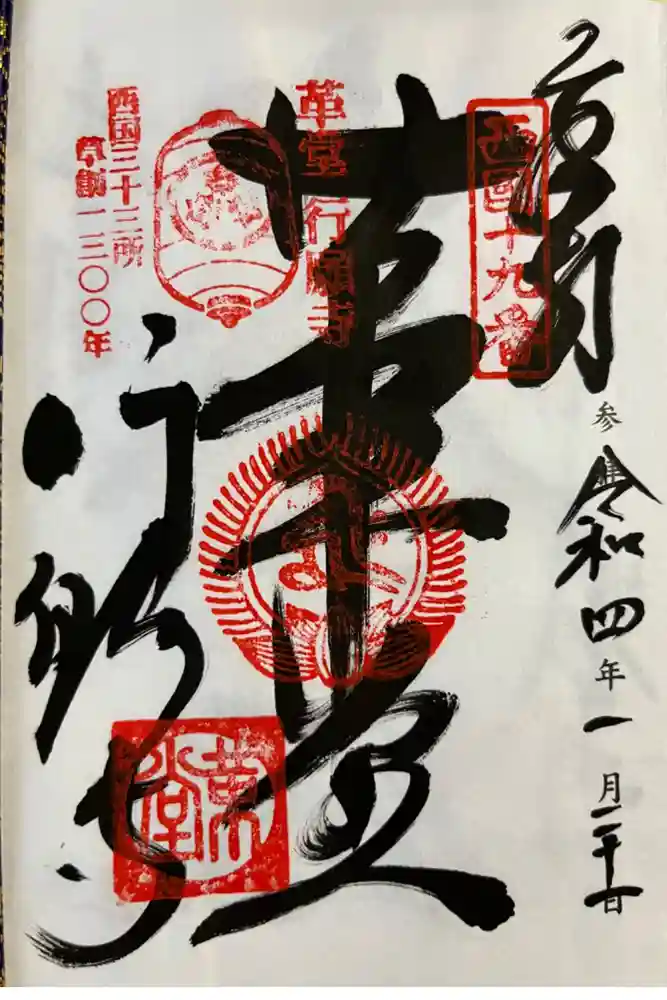 西國十九番
参
令和四年一月二十日
革堂行願寺
革堂
西国三十三所
草創一三〇〇年
行願寺
革堂